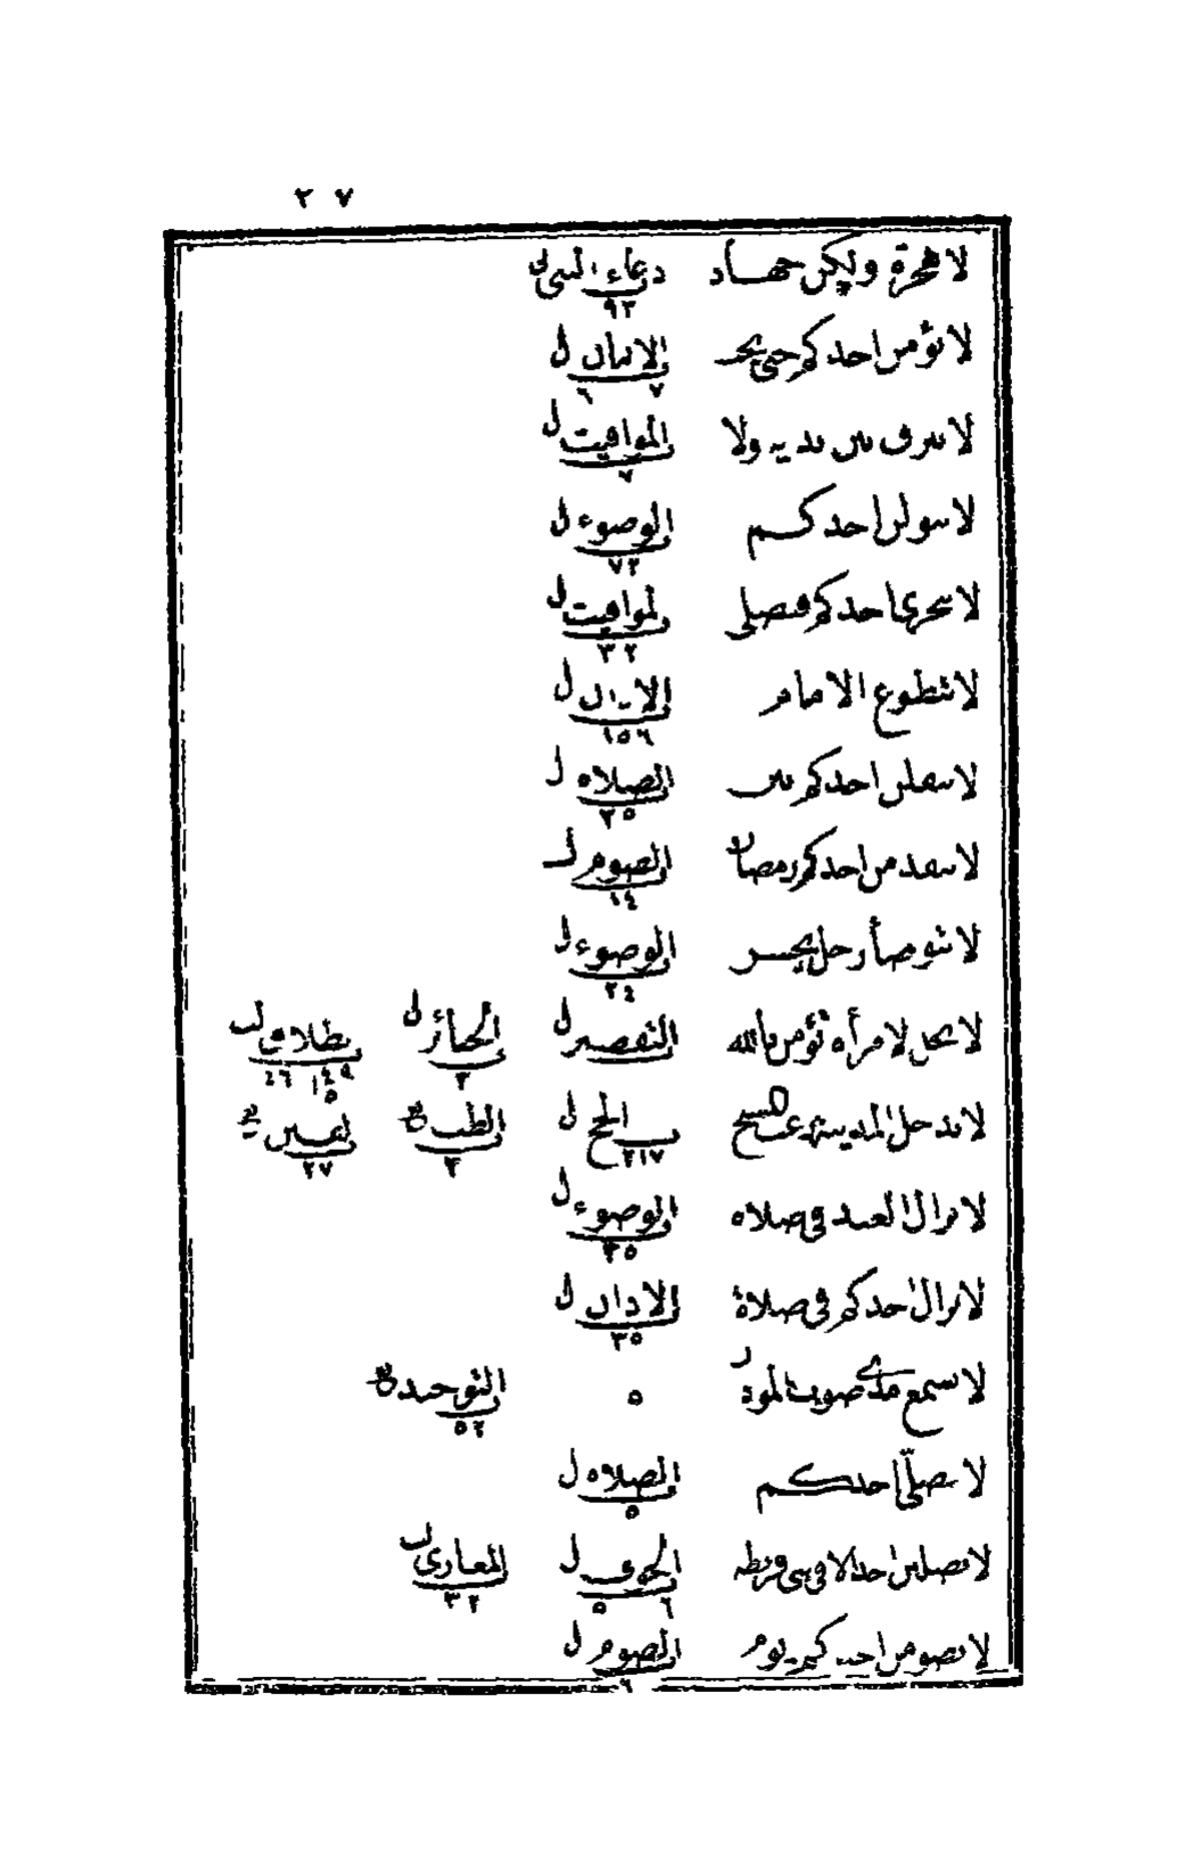 ٢٧
لا هجرة ولكن جهاد دعاء النبي ل ٩٣
لا يؤمن احدكم حتى يحب الايمان ل ٧ ٦
لا يبزق بين يديه ولا المواقيت ل ٧
لا يبولن احدكم الوضوء ل ٧٢
لا يتحرى احدكم فيصلي لمواقيت ل ٣٢
لا يتطوع الامام الاذان ل ١٥٦
لا يتفلن احدكم بين الصلاه ل ٣٥
لا يتقدمن احدكم رمضان الصوم ل ١٤
لا يتوضأ رجل يحسن الوضوء ل ٢٤
لا يحل لامرأه تؤمن بالله التقصير ل الجنائز ل ٣ بطلاق ل ٤٦ ١٤٩ ٥
لا يدخل المدينة رعب المسيح الحج ل ٢١٧ الطب ع ٣ لفتن ع ٢٧
لا يزال العبد في صلاه الوضوء ل ٣٥
لا يزال احدكم في صلاة الاذان ل ٣٥
لا يسمع مدى صوت المؤذن ٥ التوحيد ع ٥٢
لا يصلي احدكم الصلاه ل ٥
لا يصلين احد الا في بني قريظه الخوف ل ٦ ٥ المغازي ل ٣٢
لا يصومن احدكم يوم الصوم ل ٦